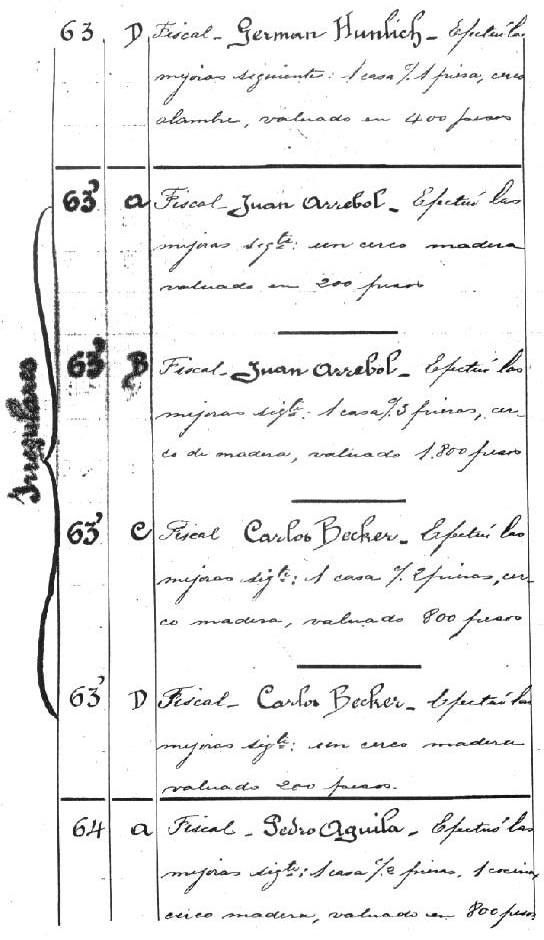 63 D Fiscal - German Hunlich - Efectuó las
mejoras siguientes: 1 casa % 1 pieza, cerco
alambre, valuado en 400 pesos
63' a Fiscal - Juan Arrebol - Efectuó las
mejoras sigte: un cerco madera
valuado en 200 pesos
Irregulares
63' B Fiscal - Juan Arrebol - Efectuó las
mejoras sigte: 1 casa % 3 piezas, cer-
co de madera, valuado 1.800 pesos
63' C Fiscal Carlos Becker - Efectuó las
mejoras sigte: 1 casa % 2 piezas, cer-
co madera, valuado 800 pesos
63' D Fiscal - Carlos Becker - Efectuó las
mejoras sigte: un cerco madera
valuado 200 pesos.
64 a Fiscal - Pedro Aguila - Efectuó las
mejoras sigte: 1 casa % 2 piezas, 1 cocina,
cerco madera, valuado en 800 pesos